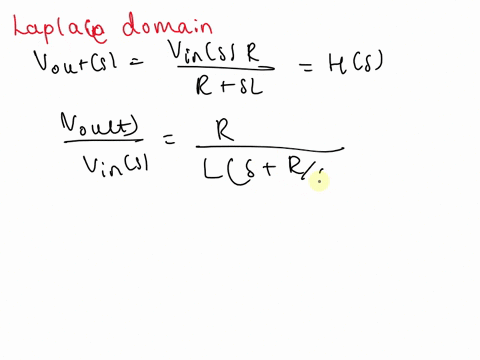 Laplace domain
Vout(s) = Vin(s) R / R + sL = H(s)
Vout(s) / Vin(s) = R / L(s + R/